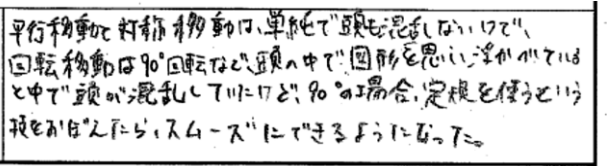 平行移動と対称移動は、単純で頭も混乱しないけで、
回転移動は90°回転など、頭の中で図形を思い浮かべている
と中で頭が混乱していたけど、90°の場合、定規を使うという
技をおぼえたら、スムーズにできるようになった。